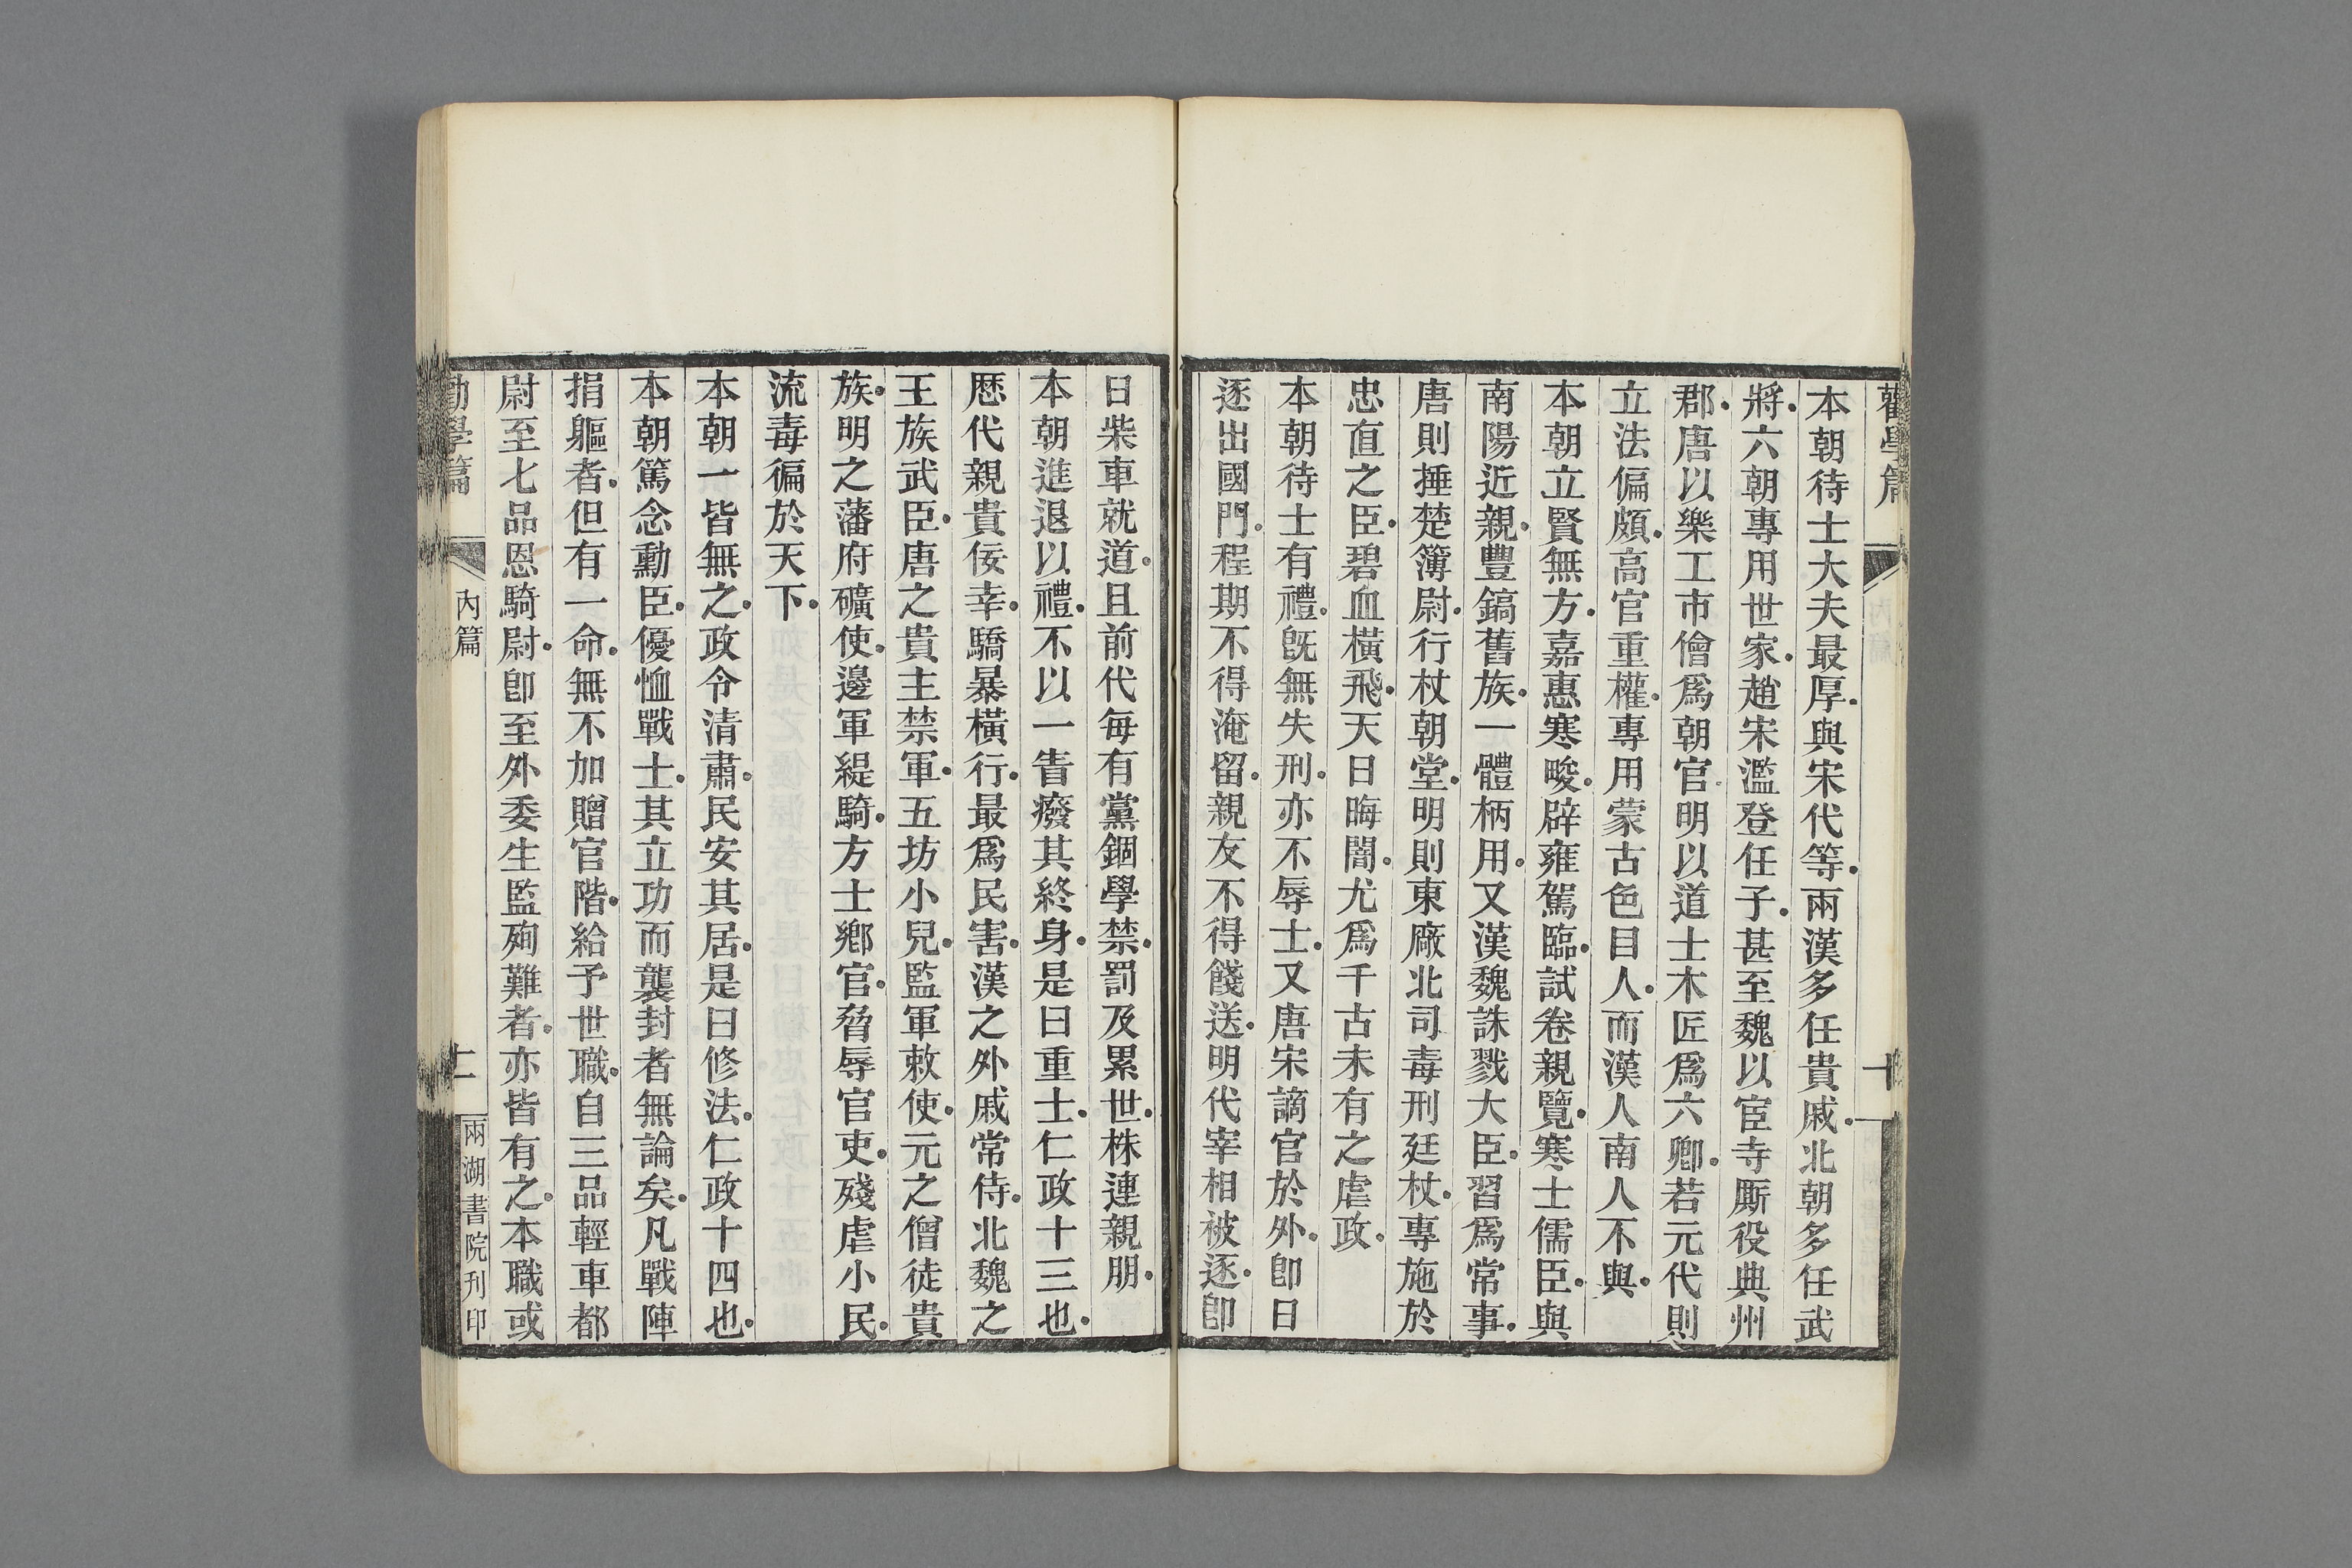 勸學篇
十
本朝待士大夫最厚。與宋代等。兩漢多任貴戚。北朝多任武
將。六朝專用世家。趙宋濫登任子。甚至魏以宦寺厮役典州
郡。唐以樂工市儈爲朝官。明以道士木匠爲六卿。若元代則
立法偏頗。高官重權。專用蒙古色目人。而漢人南人不與。
本朝立賢無方。嘉惠寒畯。辟雍駕臨。試卷親覽。寒士儒臣。與
南陽近親。豐鎬舊族。一體柄用。又漢魏誅戮大臣。習爲常事。
唐則捶楚簿尉。行杖朝堂。明則東廠北司毒刑廷杖。專施於
忠直之臣。碧血橫飛。天日晦闇。尤爲千古未有之虐政。
本朝待士有禮。旣無失刑。亦不辱士。又唐宋謫官於外。卽日
逐出國門。程期不得淹留。親友不得餞送。明代宰相被逐。卽
日柴車就道。且前代每有黨錮學禁。罰及累世。株連親朋。
本朝進退以禮。不以一眚癈其終身。是曰重士。仁政十三也。
歴代親貴佞幸。驕暴橫行。最爲民害。漢之外戚常侍。北魏之
王族武臣。唐之貴主禁軍。五坊小兒。監軍敕使。元之僧徒貴
族。明之藩府礦使。邊軍緹騎。方士鄕官。脅辱官吏。殘虐小民。
流毒徧於天下。
本朝一皆無之。政令清肅。民安其居。是曰修法。仁政十四也。
本朝篤念勳臣。優恤戰士。其立功而襲封者無論矣。凡戰陣
捐軀者。但有一命。無不加贈官階。給予世職。自三品輕車都
尉至七品恩騎尉。卽至外委生監殉難者。亦皆有之。本職或
勸學篇
內篇
十一
兩湖書院刊印